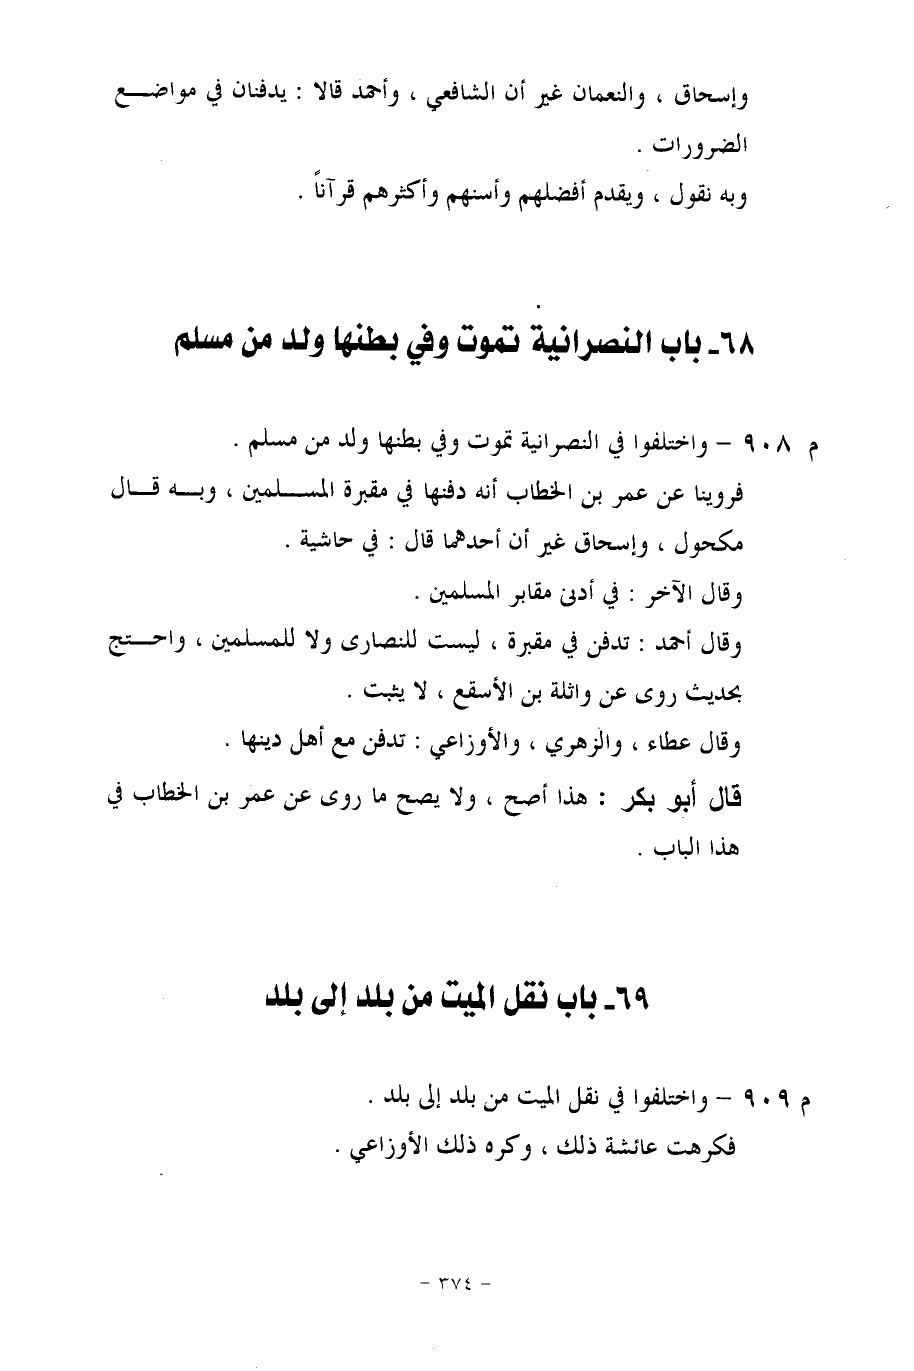 وإسحاق ، والنعمان غير أن الشافعي ، وأحمد قالا : يدفنان في مواضـــع
الضرورات .
وبه نقول ، ويقدم أفضلهم وأسنهم وأكثرهم قرآناً .
٦٨ـ باب النصرانية تموت وفي بطنها ولد من مسلم
م ٩٠٨ – واختلفوا في النصرانية تموت وفي بطنها ولد من مسلم .
فروينا عن عمر بن الخطاب أنه دفنها في مقبرة المســـلمين ، وبـــه قـــال
مكحول ، وإسحاق غير أن أحدهما قال : في حاشية .
وقال الآخر : في أدنى مقابر المسلمين .
وقال أحمد : تدفن في مقبرة ، ليست للنصارى ولا للمسلمين ، واحـــتج
بحديث روى عن واثلة بن الأسقع ، لا يثبت .
وقال عطاء ، والزهري ، والأوزاعي : تدفن مع أهل دينها .
قال أبو بكر : هذا أصح ، ولا يصح ما روى عن عمر بن الخطاب في
هذا الباب .
٦٩ـ باب نقل الميت من بلد إلى بلد
م ٩٠٩ – واختلفوا في نقل الميت من بلد إلى بلد .
فكرهت عائشة ذلك ، وكره ذلك الأوزاعي .
– ٣٧٤ –